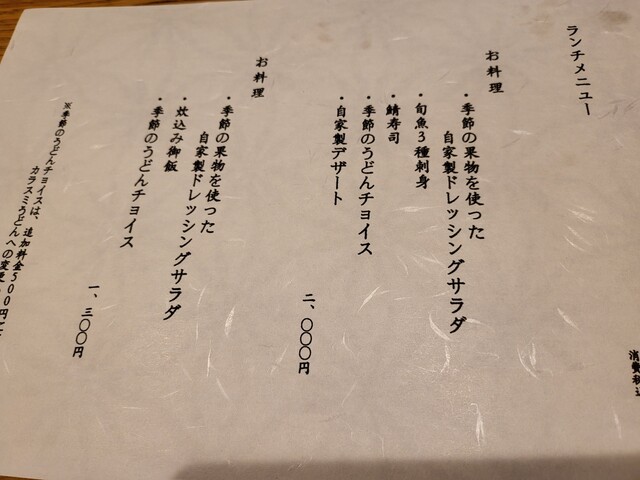 ランチメニュー
お料理
・季節の果物を使った
自家製ドレッシングサラダ
・旬魚3種刺身
・鯖寿司
・季節のうどんチョイス
・自家製デザート
二、〇〇〇円
お料理
・季節の果物を使った
自家製ドレッシングサラダ
・炊込み御飯
・季節のうどんチョイス
一、三〇〇円
※季節のうどんチョイスは、追加料金500円で
カラスミうどんへの変更
消費税込